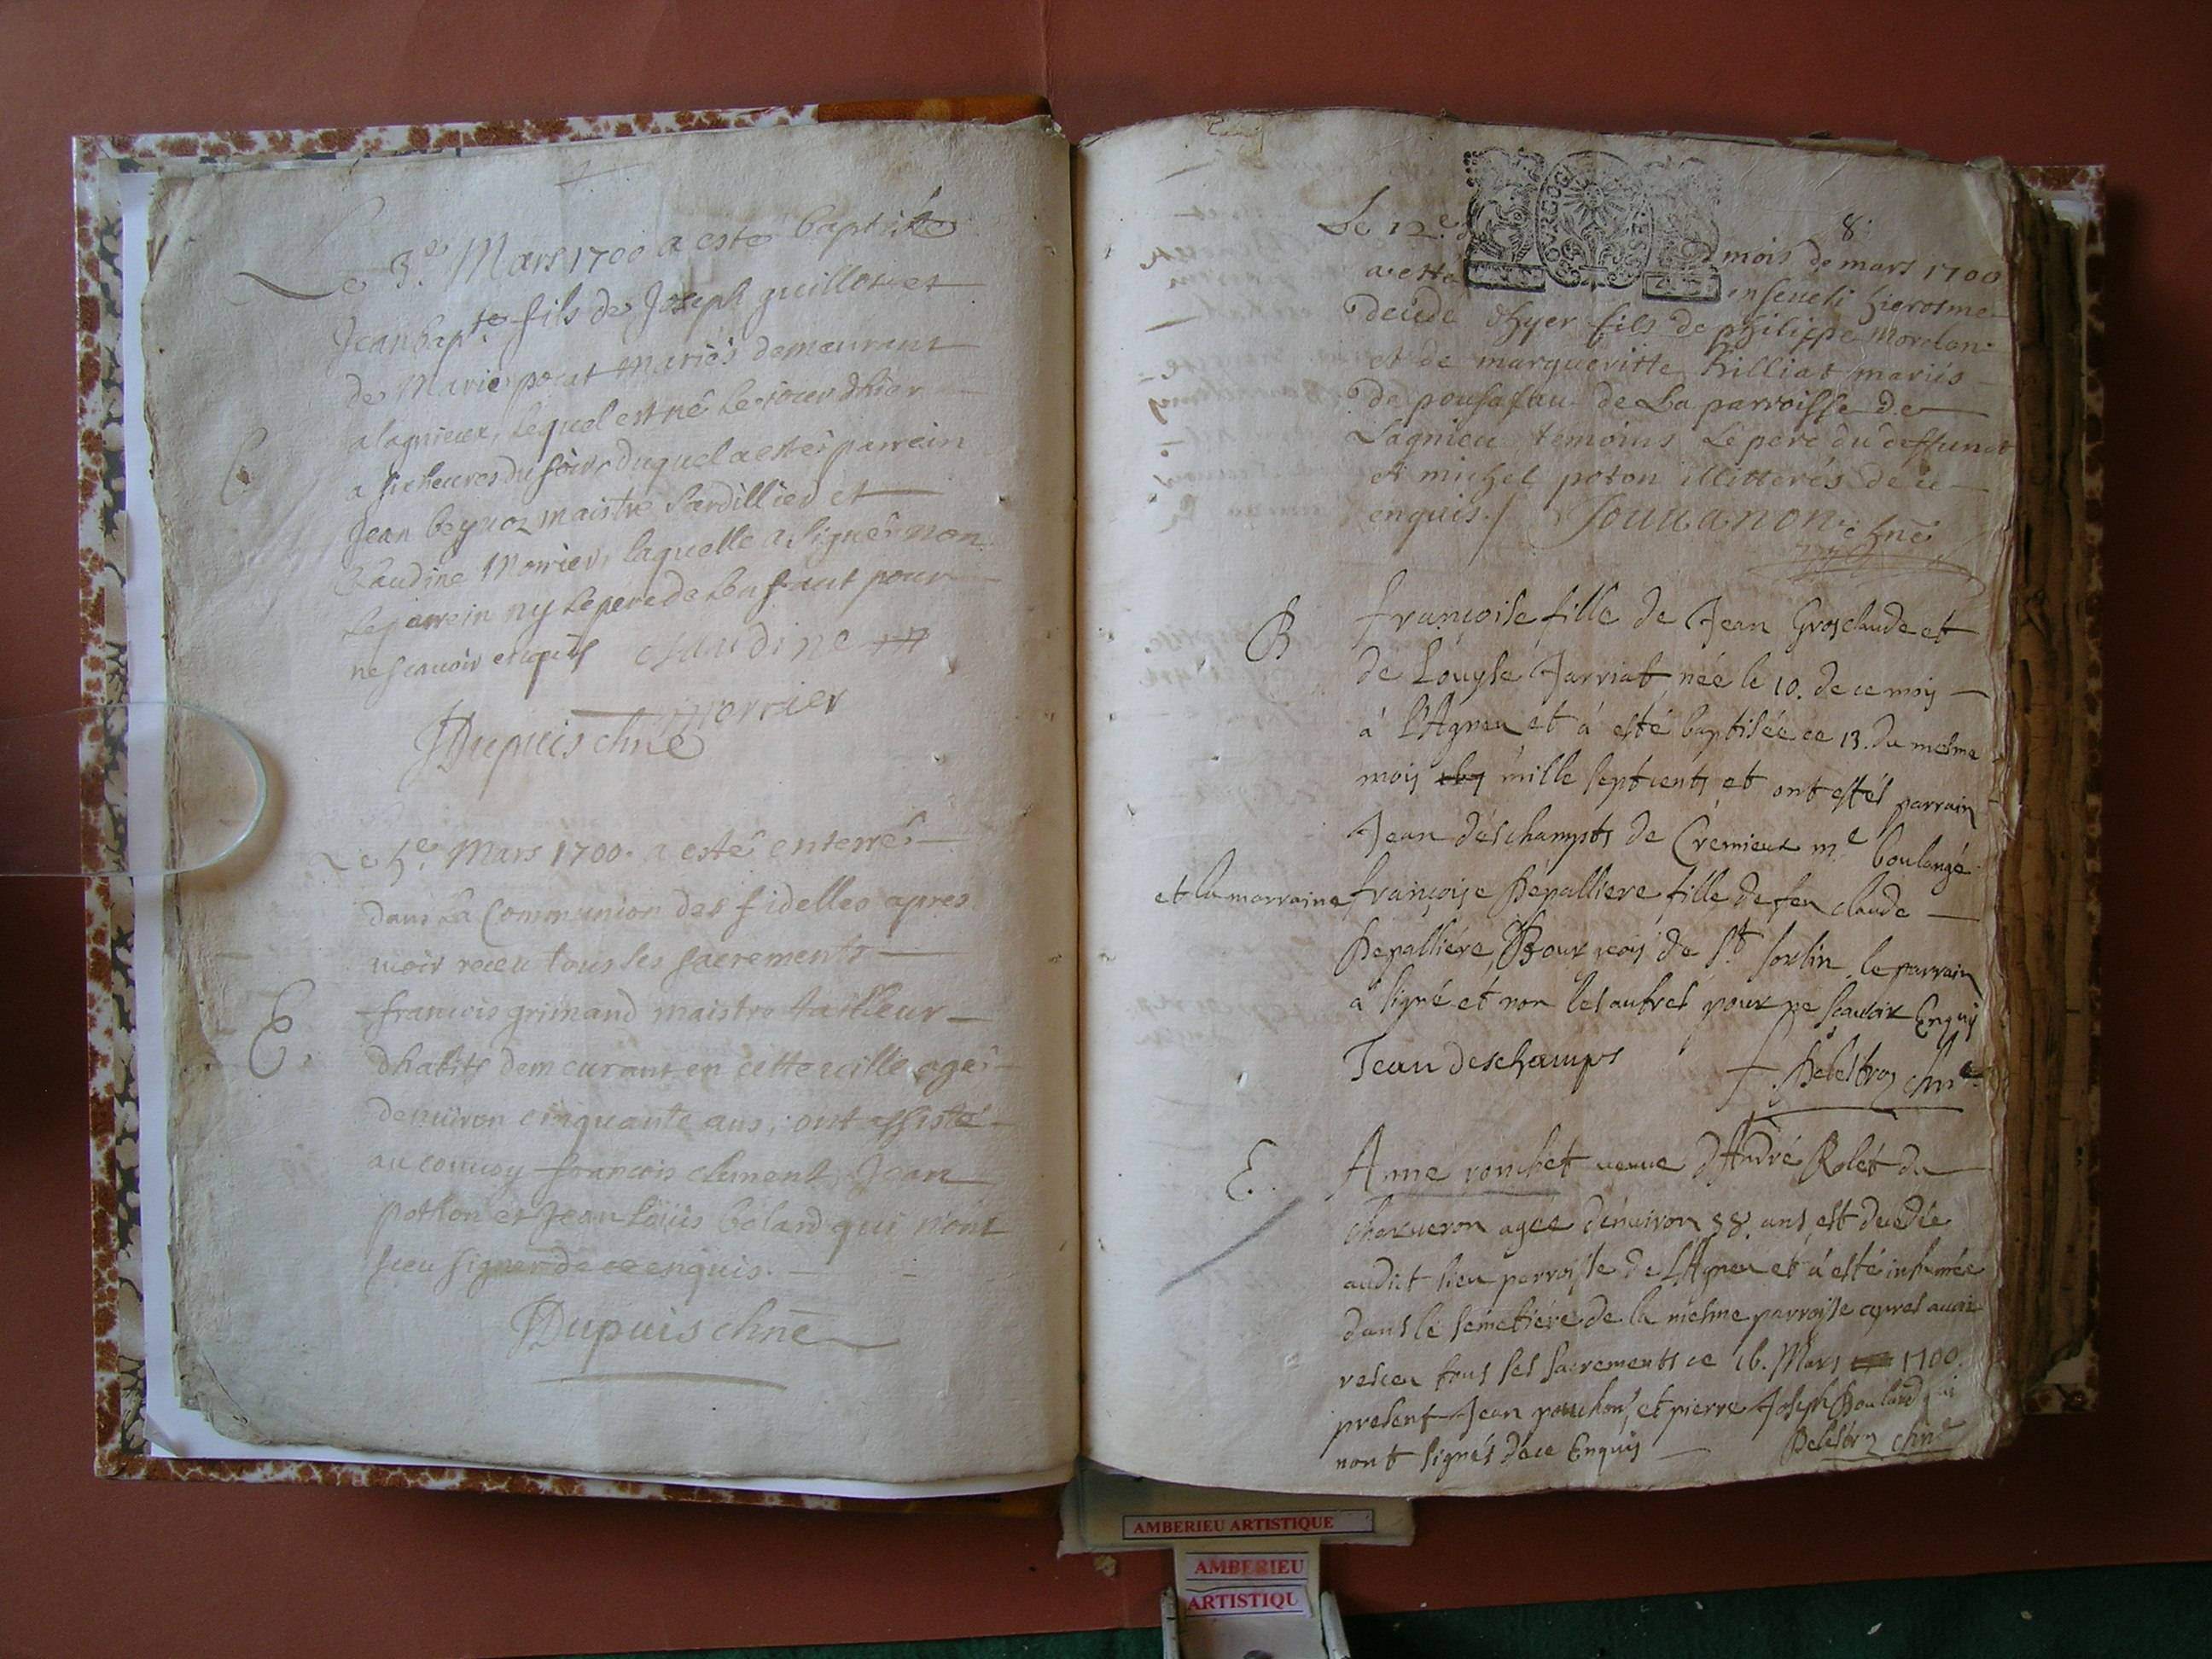 Le 3.e Mars 1700 a esté baptisé
Jean bapt.te fils de Joseph guillot et
de Marie pocat mariés demeurant
a lagnieux, lequel est né le jour dhier
a six heures du soir, duquel a esté parrein
C
Jean beynoz maistre et
Claudine Morrier, laquelle a signé non
le parrein ny le pere de lenfant pour
ne scauoir enquis claudine
morrier
JDupuis chne
Le 5.e Mars 1700. a esté enterré
dans la Communion des fidelles apres
auoir receu tous les sacrements
francois grimand maistre tailleur
E.
dhabits demeurant en cette ville agé
denuiron cinquante ans, ont assisté
au conuoy francois clement, Jean
pothon et Jean Louis boland qui n'ont
sceu signer de ce enquis.
JDupuis chne
8.
Le 12.e mois de mars 1700
a esté enseueli hierosme
décédé dhyer fils de philippe Morelon
et de margueritte billiat mariés
de pousafau de La parroisse de
Lagnieu temoins Le pere du deffunct
et michel poton illitterés de ce
enquis. / Jouuanon chne
B
françoise fille de Jean Grosclaude et
de Louyse Jarriat née le 10. de ce moy
á LAgneu et á esté baptisée ce 13. du mesme
moy mille septcents et ont estés parrain
Jean deschampts de Cremieux m.e boulangé
et la marraine françoise Depalliere fille de feu claude
Depalliére Bourgeois de S.t Sorlin le parrain
á signé et non les autres pour ne scauoir Enquis
Jean deschamps f. Delestroz chne
E.
Anne rombet veuue dAndré Rolet du
Charueron agee denuiron 58. ans est decedée
audict lieu parroisse de LAgneu et á esté inhumée
dans le semetiére de la mesme parroisse apres auoir
resceu tous ses sacrements ce 16. Mars 1700.
present Jean pouchon, et pierre Joseph Bouland qui
nont signés déce Enquis Delestroz chne
AMBERIEU ARTISTIQUE
AMBERIEU
ARTISTIQU